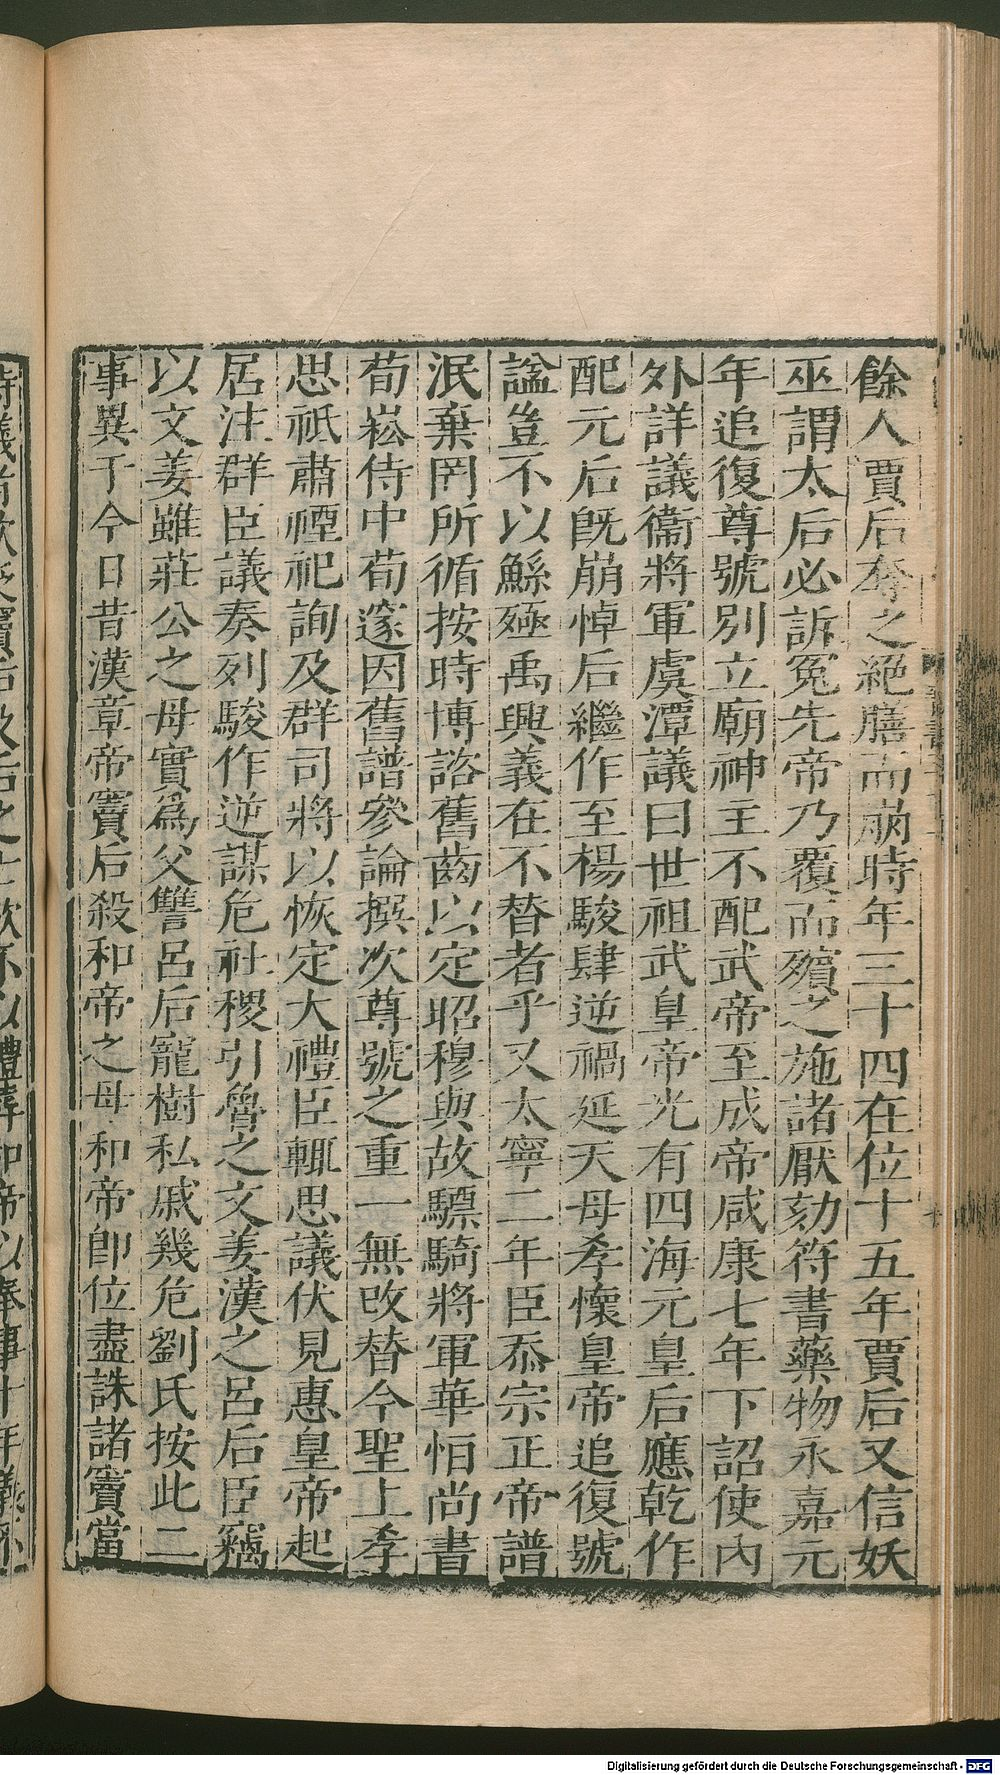 餘人賈后奪之絕膳而崩時年三十四在位十五年賈后又信妖
巫謂太后必訴冤先帝乃覆而殯之施諸厭劾符書藥物永嘉元
年追復尊號別立廟神主不配武帝至成帝咸康七年下詔使內
外詳議衞將軍虞潭議曰世祖武皇帝光有四海元皇后應乾作
配元后旣崩悼后繼作至楊駿肆逆禍延天母孝懷皇帝追復號
諡豈不以鯀殛禹興義在不替者乎又太寧二年臣忝宗正帝譜
泯棄罔所循按時博諮舊齒以定昭穆與故驃騎將軍華恒尚書
荀崧侍中荀邃因舊譜參論撰次尊號之重一無改替今聖上孝
思祇肅禋祀詢及群司將以恢定大禮臣輒思議伏見惠皇帝起
居注群臣議奏列駿作逆謀危社稷引魯之文姜漢之呂后臣竊
以文姜雖莊公之母實爲父讐呂后寵樹私戚幾危劉氏按此二
事異于今日昔漢章帝竇后殺和帝之母和帝卽位盡誅諸竇當
Digitalisierung gefördert durch die Deutsche Forschungsgemeinschaft - DFG